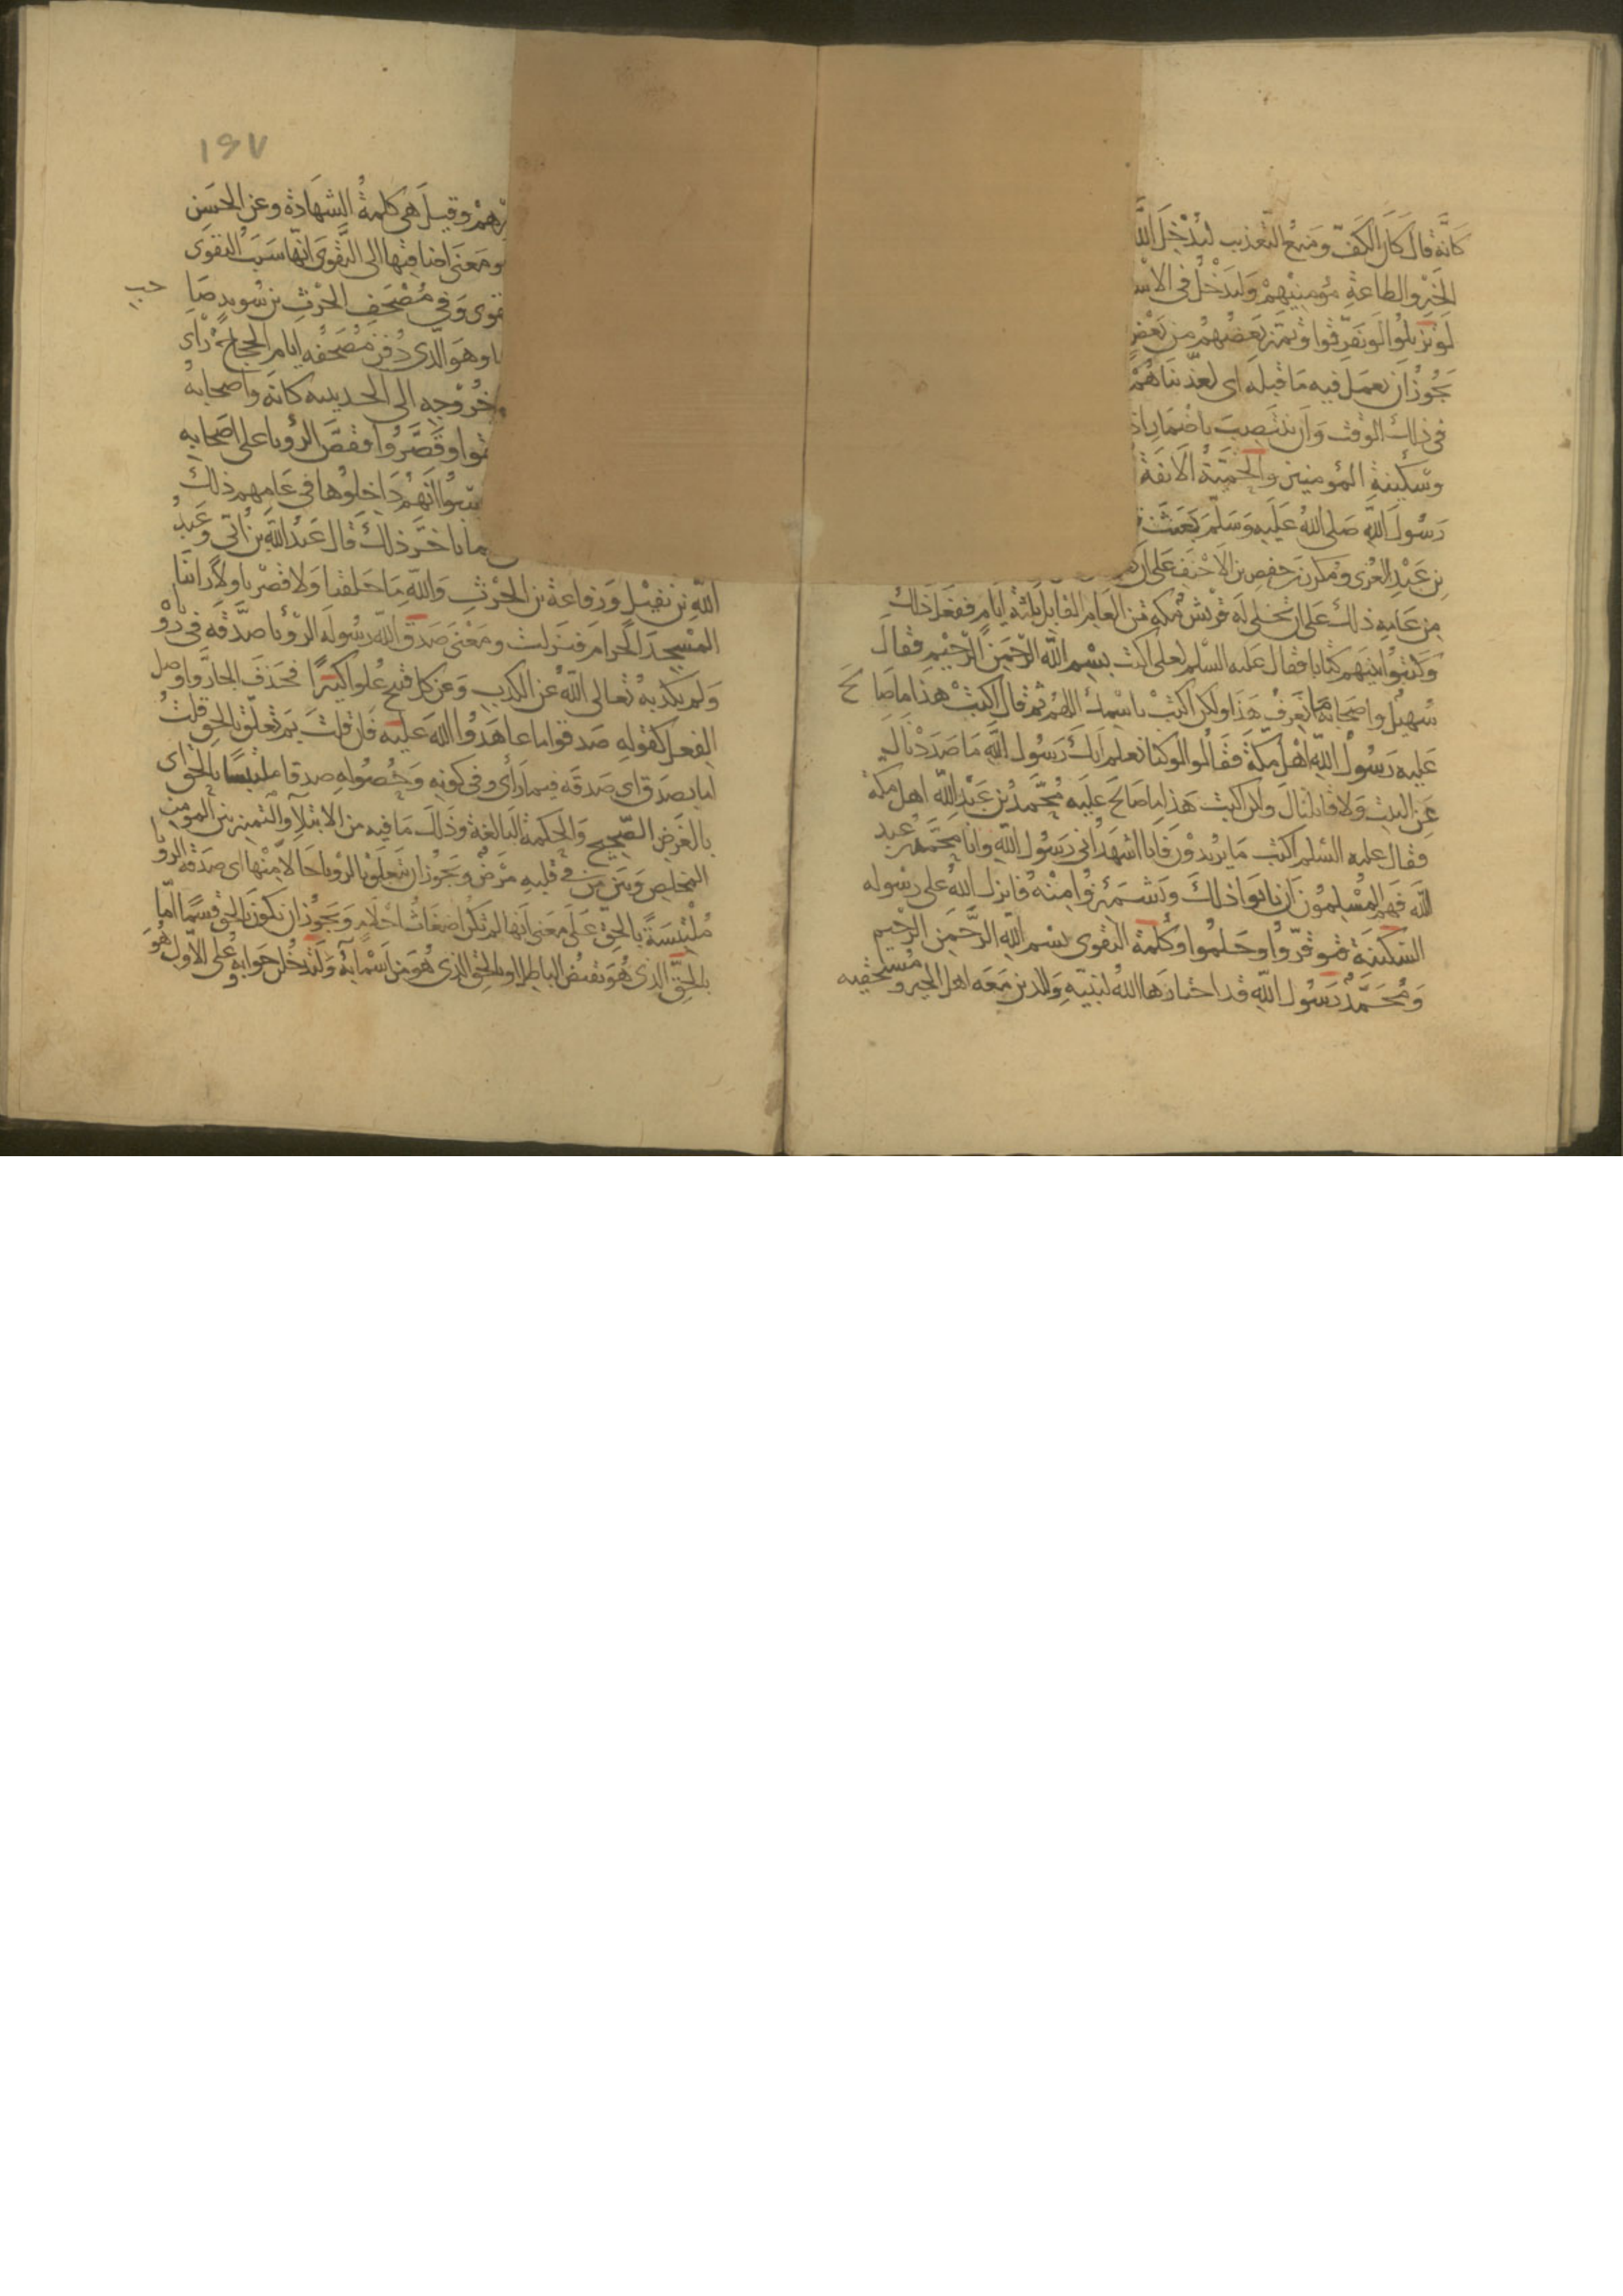 كانه قال كان الكف ومنع التعذيب ليدخل الله
الخير والطاعة مؤمنيهم وليدخل في الاس
لو تزيلوا لو تفرقوا وتميز بعضهم من بعض
يجوز ان يعمل فيه ما قبله اي لعذبناهم
في ذلك الوقت وان ينتصب باضمار اذ
وسكينة المؤمنين والحمية الانفة
رسول الله صلى الله عليه وسلم بعثت
بن عبد العزى ومكرز بن حفص بن الاحنف على ان
من عامه ذلك على ان تخلي له قريش مكة من العام القابل ثلثة ايام ففعل ذلك
وكتبوا بينهم كتابا فقال عليه السلم لعلي اكتب بسم الله الرحمن الرحيم فقال
سهيل واصحابه ما نعرف هذا ولكن اكتب باسمك اللهم ثم قال اكتب هذا ما صالح
عليه رسول الله اهل مكة فقالوا لو كنا نعلم انك رسول الله ما صددناك
عن البيت ولا قاتلناك ولكن اكتب هذا ما صالح عليه محمد بن عبد الله اهل مكة
فقال عليه السلم اكتب ما يريدون فانا اشهد اني رسول الله وانا محمد بن عبد
الله فهم المسلمون ان يابوا ذلك ويشمئزوا منه فانزل الله على رسوله
السكينة فتوقروا وحلموا وكلمة التقوى بسم الله الرحمن الرحيم
ومحمد رسول الله قد اختارها الله لنبيه والذين معه اهل الخير ومستحقيه
١٤٧
هم وقيل هي كلمة الشهادة وعن الحسن
ومعنى اضافتها الى التقوى انها سبب التقوى
قوى وفي مصحف الحرث بن سويد صا
حب
ا وهو الذي دفن مصحفه ايام الحجاج راى
خروجه الى الحديبية كانه واصحابه
قوا وقصروا فقص الرؤيا على اصحابه
بوا انهم داخلوها في عامهم ذلك
ما تاخر ذلك قال عبد الله بن ابي وعبد
الله بن نفيل ورفاعة بن الحرث والله ما حلقنا ولا قصرنا ولا راينا
المسجد الحرام فنزلت ومعنى صدق الله رسوله الرؤيا صدقه في رؤياه
ولم يكذبه تعالى الله عن الكذب وعن كل قبيح علوا كبيرا فحذف الجار واوصل
الفعل كقوله صدقوا ما عاهدوا الله عليه فان قلت بم تعلق بالحق قلت
اما بصدق اي صدقه فيما راى وفي كونه وحصوله صدقا ملتبسا بالحق اي
بالغرض الصحيح والحكمة البالغة وذلك ما فيه من الابتلاء والتمييز بين المومن
المخلص وبين من في قلبه مرض ويجوز ان يتعلق بالرؤيا حالا منها اي صدقه الرويا
ملتبسة بالحق على معنى انها لم تكن اضغاث احلام ويجوز ان يكون بالحق قسما اما
بالحق الذي هو نقيض الباطل او بالحق الذي هو من اسمائه ولتدخلن جوابه وعلى الاول هو